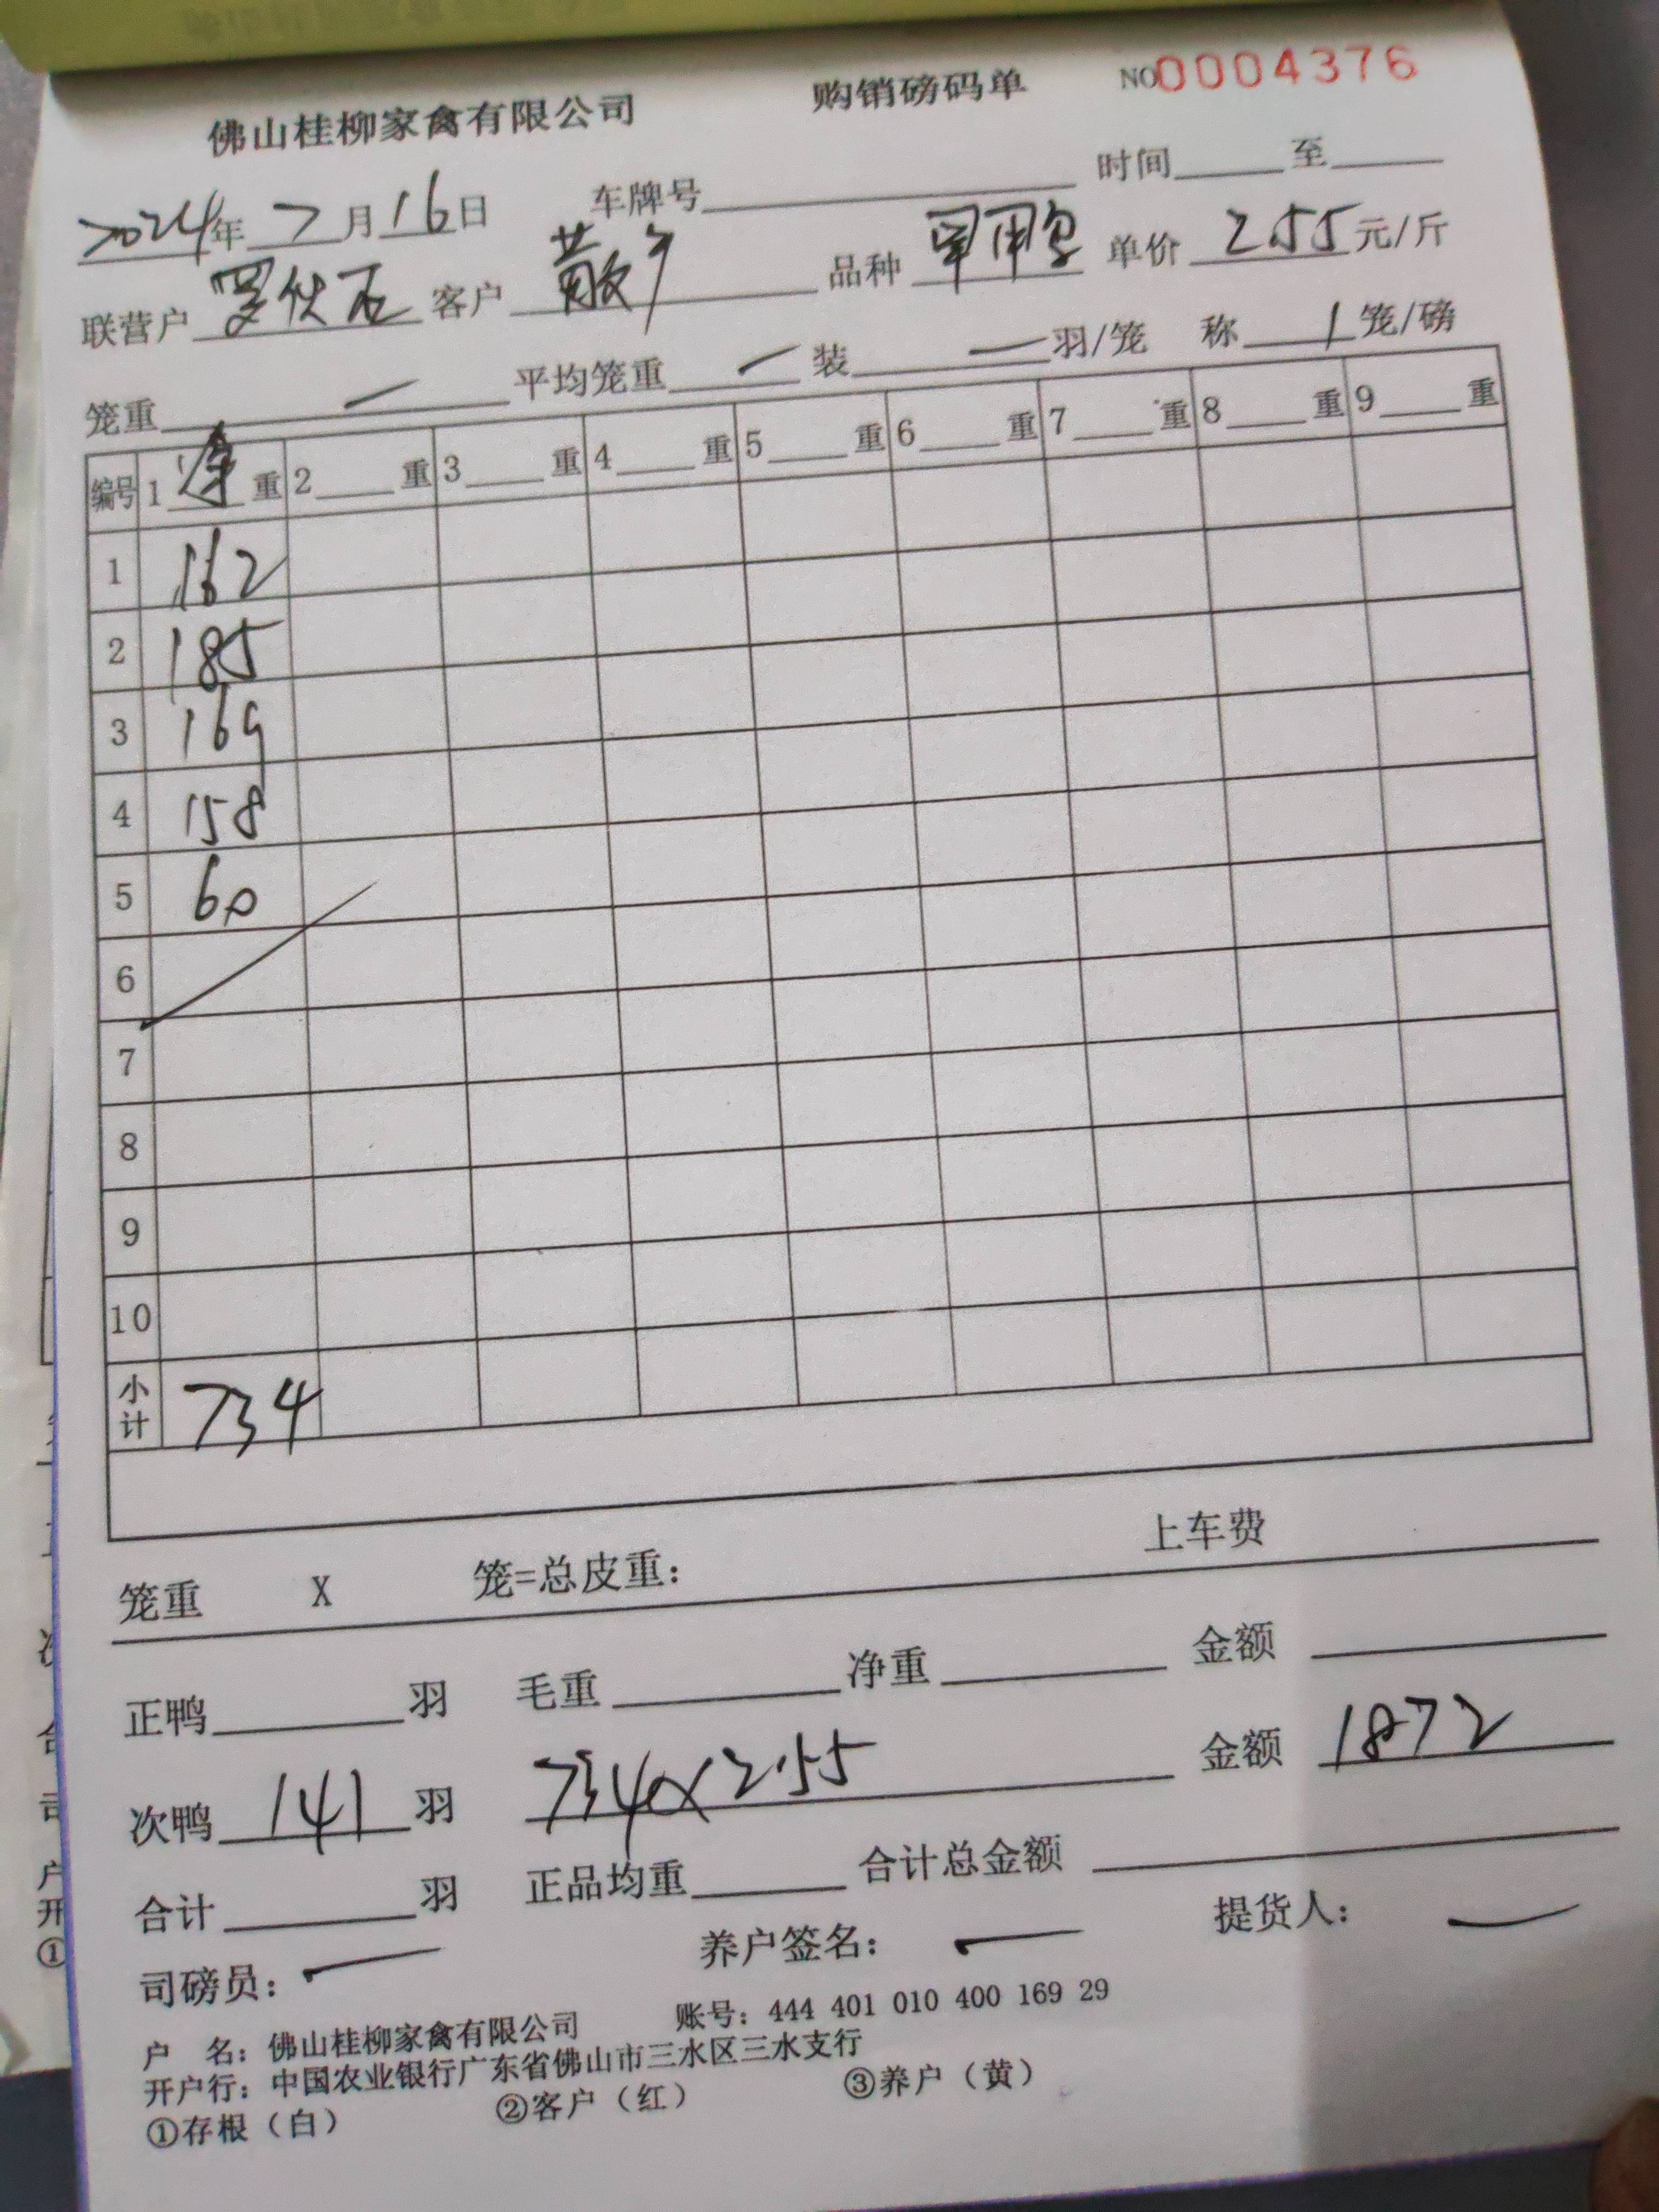 佛山桂柳家禽有限公司 购销磅码单 NO0004376
2024年 7月16日 车牌号 时间 至
联营户 罗伙石 客户 散户 品种 单价 255元/斤
笼重 一 平均笼重 一 装 一 羽/笼 称 1 笼/磅
编号 1 净 重 2 重 3 重 4 重 5 重 6 重 7 重 8 重 9 重
1 162
2 185
3 169
4 158
5 60
6
7
8
9
10
小计 734
笼重 X 笼=总皮重: 上车费
正鸭 羽 毛重 净重 金额
次鸭 141 羽 734×2.55 金额 1872
合计 羽 正品均重 合计总金额
司磅员: 一 养户签名: 一 提货人: 一
户 名: 佛山桂柳家禽有限公司 账号: 444 401 010 400 169 29
开户行: 中国农业银行广东省佛山市三水区三水支行
①存根(白) ②客户(红) ③养户(黄)